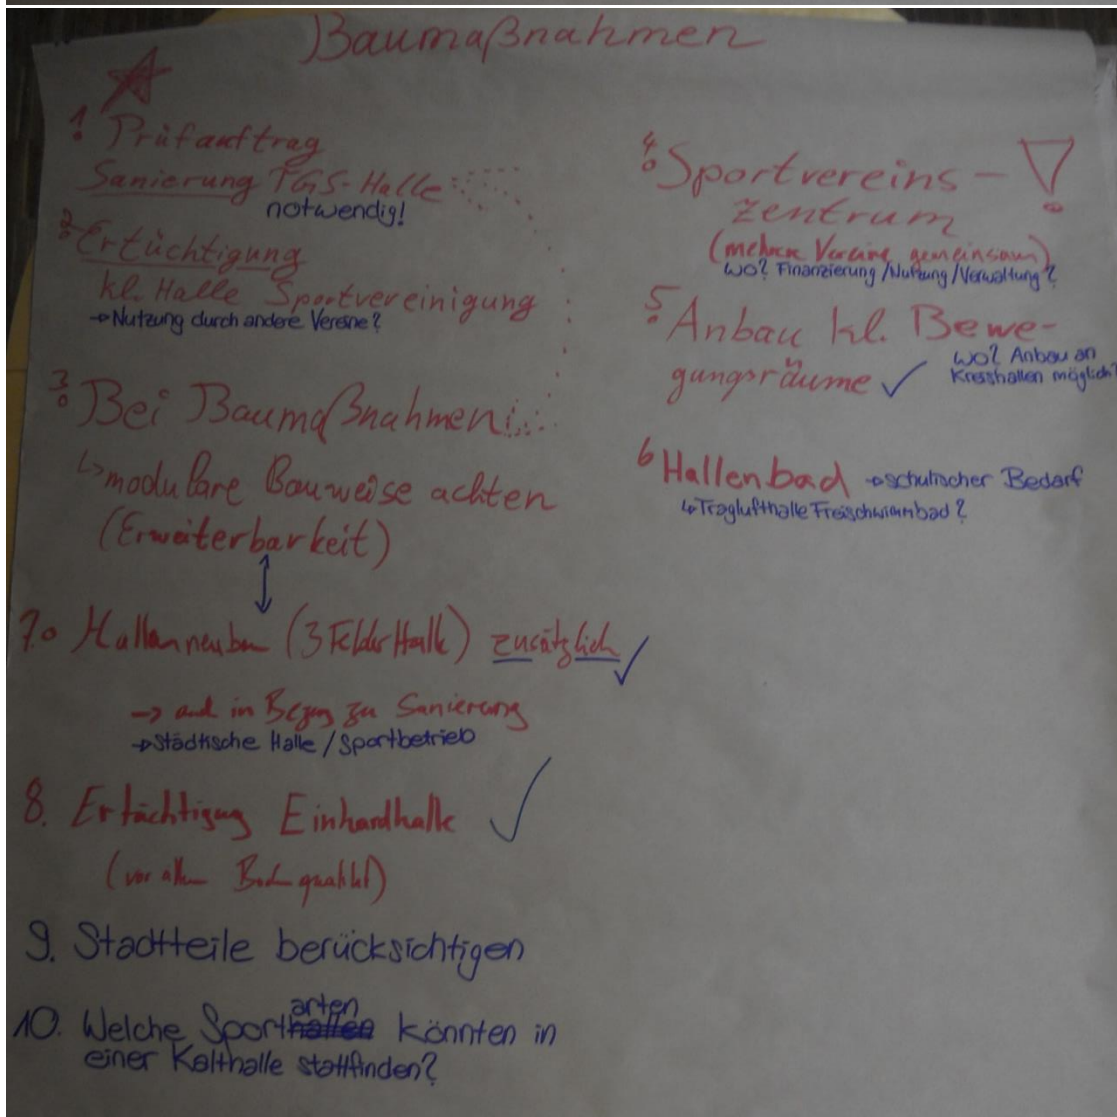 Baumaßnahmen
1. Prüfauftrag
Sanierung TGS-Halle
notwendig!
2. Ertüchtigung
kl. Halle Sportvereinigung
→ Nutzung durch andere Vereine?
3. Bei Baumaßnahmen
↳ modulare Bauweise achten
(Erweiterbarkeit)
↕
7. Hallenneubau (3 Felder Halle) zusätzlich ✓
→ auch in Bezug zu Sanierung
→ Städtische Halle / Sportbetrieb
8. Ertüchtigung Einhardhalle ✓
(vor allem Bodenqualität)
9. Stadtteile berücksichtigen
10. Welche Sportarten könnten in
einer Kalthalle stattfinden?
4. Sportvereins- !
zentrum
(mehrere Vereine gemeinsam)
Wo? Finanzierung / Nutzung / Verwaltung?
5. Anbau kl. Bewe-
gungsräume ✓
Wo? Anbau an
Kreishallen möglich?
6 Hallenbad → schulischer Bedarf
↳ Traglufthalle Freischwimmbad?